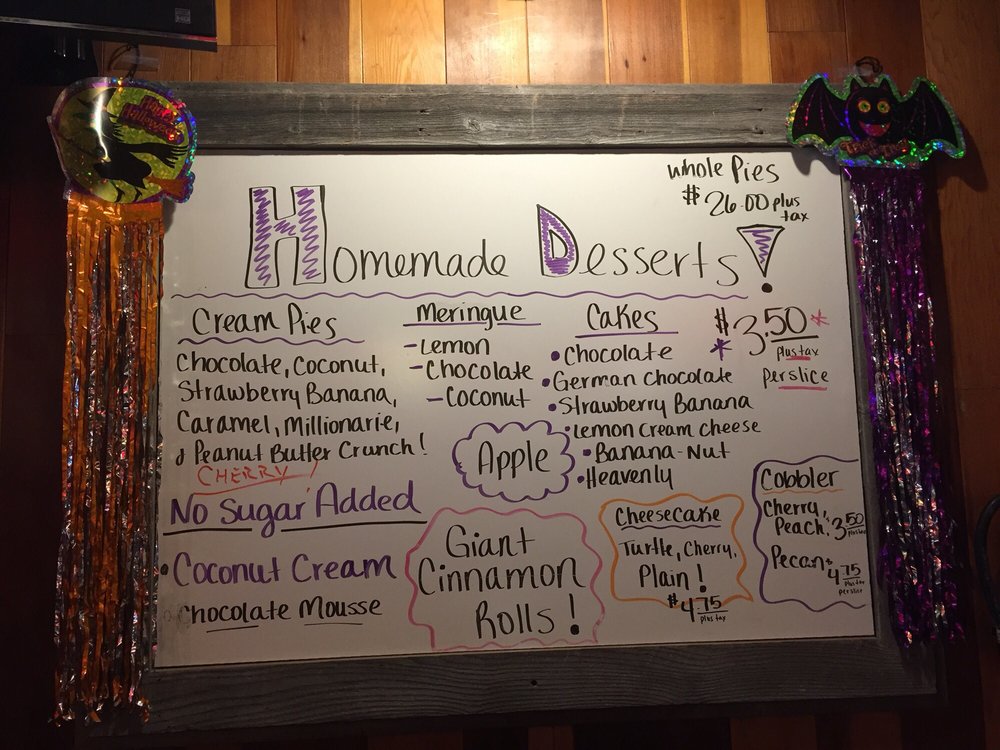 Whole Pies
$26.00 plus
tax
Homemade Desserts!
Cream Pies
Chocolate, Coconut,
Strawberry Banana,
Caramel, Millionarie,
& Peanut Butter Crunch!
CHERRY!
Meringue
- Lemon
- Chocolate
- Coconut
Apple
Cakes
• Chocolate
• German Chocolate
• Strawberry Banana
• Lemon Cream cheese
• Banana-Nut
• Heavenly
$3.50
plus tax
per slice
No Sugar Added
• Coconut Cream
Chocolate Mousse
Giant
Cinnamon
Rolls!
Cheesecake
Turtle, Cherry,
Plain!
$4.75
plus tax
Cobbler
Cherry,
Peach: 3.50
plus tax
Pecan: 4.75
plus tax
per slice
Happy
Halloween